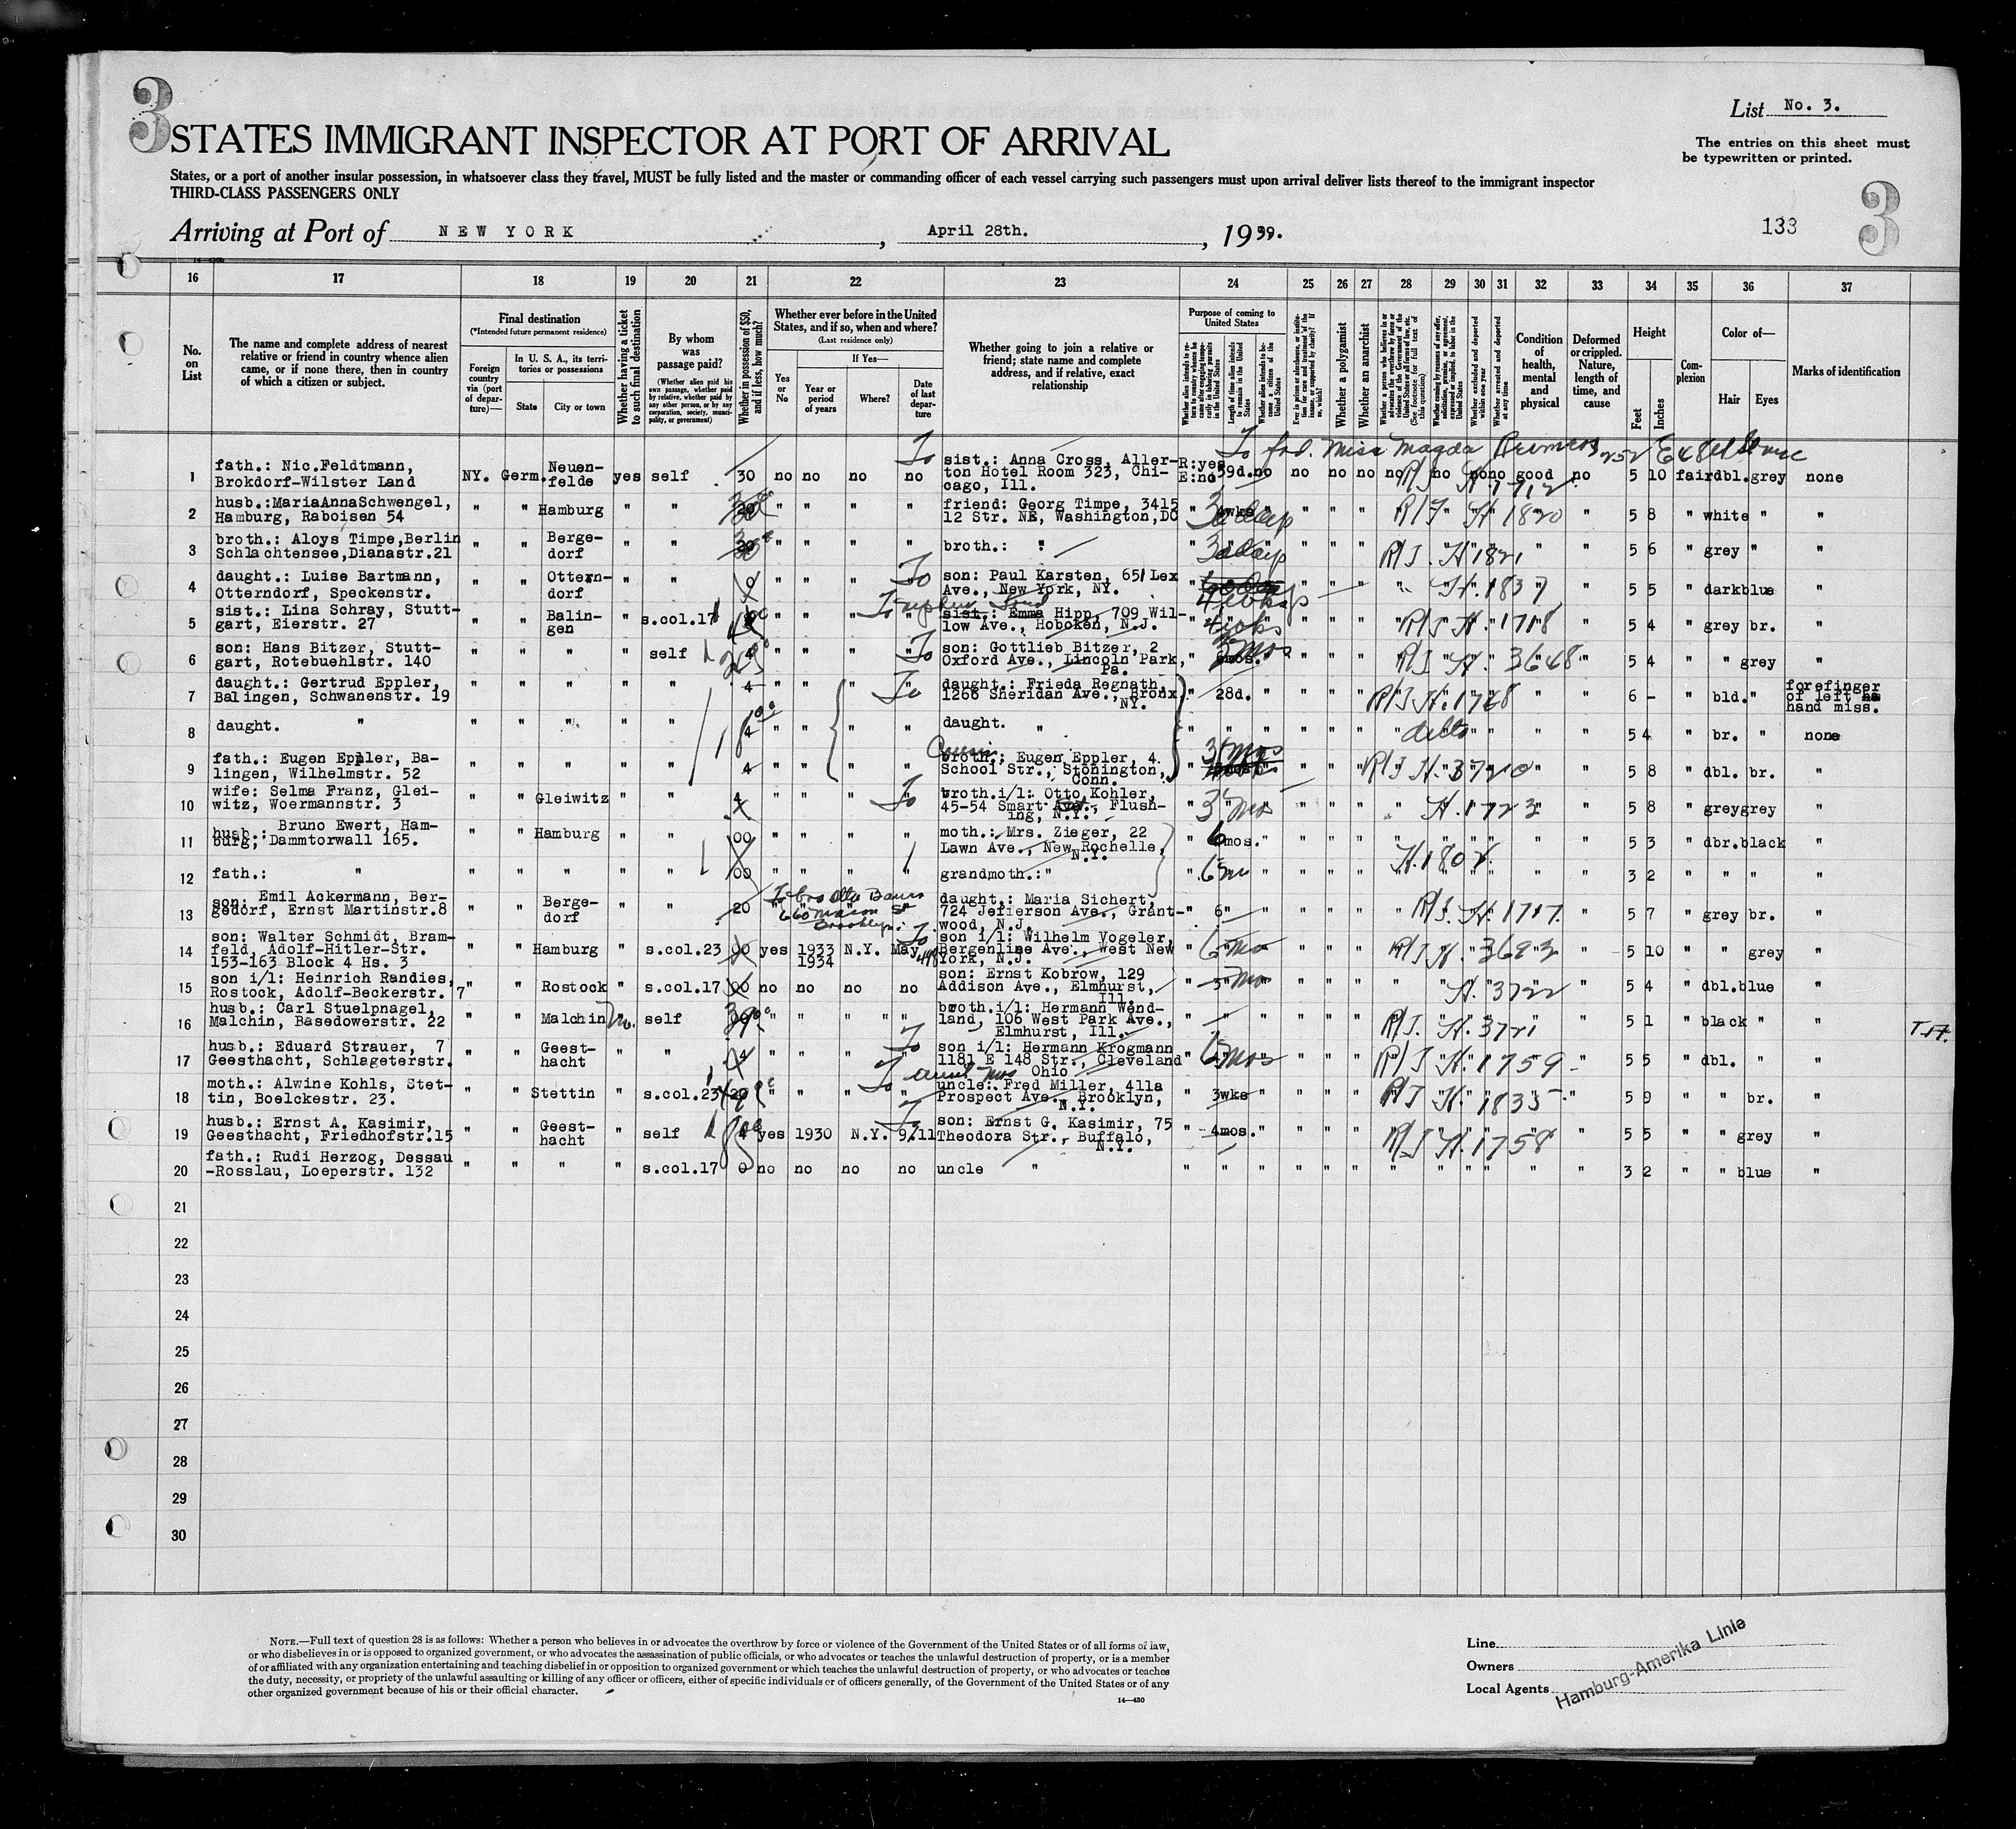 3
List No. 3.
STATES IMMIGRANT INSPECTOR AT PORT OF ARRIVAL
The entries on this sheet must
be typewritten or printed.
States, or a port of another insular possession, in whatsoever class they travel, MUST be fully listed and the master or commanding officer of each vessel carrying such passengers must upon arrival deliver lists thereof to the immigrant inspector
THIRD-CLASS PASSENGERS ONLY
Arriving at Port of NEW YORK, April 28th., 1939.
133
3
16 17 18 19 20 21 22 23 24 25 26 27 28 29 30 31 32 33 34 35 36 37
No. on List
The name and complete address of nearest relative or friend in country whence alien came, or if none there, then in country of which a citizen or subject.
Final destination
(*Intended future permanent residence)
Foreign country via (port of departure)—
In U. S. A., its territories or possessions
State
City or town
Whether having a ticket to such final destination
By whom was passage paid?
(Whether alien paid his own passage, whether paid by relative, whether paid by any other person, or by any corporation, society, municipality, or government)
Whether in possession of $50, and if less, how much?
Whether ever before in the United States, and if so, when and where?
(Last residence only)
Yes or No
If Yes—
Year or period of years
Where?
Date of last departure
Whether going to join a relative or friend; state name and complete address, and if relative, exact relationship
Purpose of coming to United States
Length of time alien intends to remain in the United States
Whether alien intends to become a citizen of the United States
Whether a polygamist
Whether an anarchist
Whether excluded and deported within one year
Whether arrested and deported at any time
Condition of health, mental and physical
Deformed or crippled. Nature, length of time, and cause
Height
Feet
Inches
Complexion
Color of—
Hair
Eyes
Marks of identification
To frd. Miss Magda
1 fath.: Nic.Feldtmann, Brokdorf-Wilster Land NY. Germ. Neuenfelde yes self 30 no no no no To sist.: Anna Cross, Allerton Hotel Room 323, Chicago, Ill. R:yes E:no 59d. no no no no no no no no good no 5 10 fair dbl. grey none
H 1712
2 husb.:MariaAnnaSchwengel, Hamburg, Raboisen 54 " " Hamburg " " " " " " friend: Georg Timpe, 3415 12 Str. NE, Washington,DC " 4wks " H 1820 " 5 8 " white " "
3 broth.: Aloys Timpe,Berlin Schlachtensee,Dianastr.21 " " Bergedorf " " " " " " broth.: " " " H 1821 " " 5 6 " grey " "
4 daught.: Luise Bartmann, Otterndorf, Speckenstr. " " Otterndorf " " " " " To son: Paul Karsten, 651 Lex Ave., New York, NY. " H. 1837 " 5 5 " dark blue "
5 sist.: Lina Schray, Stuttgart, Eierstr. 27 " " Balingen " s.col.17 " " " " To nephew sist.: Emma Hipp, 709 Willow Ave., Hoboken, N.J. " 4 wks " H. 1718 " 5 4 " grey br. "
6 son: Hans Bitzer, Stuttgart, Rotebuehlstr. 140 " " " " self " " " To son: Gottlieb Bitzer, 2 Oxford Ave., Lincoln Park, Pa. " mos. " H. 3648 " 5 4 " " grey "
7 daught.: Gertrud Eppler, Balingen, Schwanenstr. 19 " " " " " 4 " " " To daught.: Frieda Regnath, 1266 Sheridan Ave., Bronx, NY. " 28d. " H. 1728 " " 6 - " bld. " forefinger of left hand miss.
8 daught. " " " " " " 4 " " " " daught. " " " " ditto " " 5 4 " br. " none
9 fath.: Eugen Eppler, Balingen, Wilhelmstr. 52 " " " " " 4 " " " " Cousin broth.: Eugen Eppler, 4 School Str., Stonington, Conn. " 3 mos " H. 3720 " 5 8 " dbl. br. "
10 wife: Selma Franz, Gleiwitz, Woermannstr. 3 " " Gleiwitz " " 4 " " " To broth.i/l: Otto Kohler, 45-54 Smart Flushing, N.Y. " 3 mo " H. 1723 " 5 8 " grey grey "
11 husb.: Bruno Ewert, Hamburg, Dammtorwall 165. " " Hamburg " " 00 " " " " moth.: Mrs. Zieger, 22 Lawn Ave., New Rochelle, N.Y. " 6 mos. " " " 5 3 " dbr. black "
12 fath.: " " " " " " 00 " " " " grandmoth.: " " " " " 3 2 " " " "
13 son: Emil Ackermann, Bergedorf, Ernst Martinstr.8 " " Bergedorf " " 20 To bro Otto Bauer Brooklyn daught.: Maria Sichert, 724 Jefferson Ave., Grantwood, N.J. " 6 " H. 1717 " 5 7 " grey br. "
14 son: Walter Schmidt, Bramfeld, Adolf-Hitler-Str. 153-163 Block 4 Hs. 3 " " Hamburg " s.col.23 00 yes 1933 1934 N.Y. May To son i/l: Wilhelm Vogeler, Bergenline Ave., West New York, N.J. " 6 mo " H. " 5 10 " " grey "
15 son i/l: Heinrich Randies, Rostock, Adolf-Beckerstr. 7 " " Rostock " s.col.17 00 no no no no son: Ernst Kobrow, 129 Addison Ave., Elmhurst, Ill. " 3 mo " H. 3722 " 5 4 " dbl. blue "
16 husb.: Carl Stuelpnagel, Malchin, Basedowerstr. 22 " " Malchin self " " " " broth.i/l: Hermann Wendland, 106 West Park Ave., Elmhurst, Ill. " " H. 3721 " 5 1 " black " "
17 husb.: Eduard Strauer, 7 Geesthacht, Schlageterstr. " " Geesthacht " " 4 " " " To son i/l: Hermann Krogmann 1181 E 148 Str., Cleveland Ohio " 6 mos " H. 1759 " 5 5 " dbl. " "
18 moth.: Alwine Kohls, Stettin, Boelckestr. 23. " " Stettin " s.col.23 20 " " " To aunt Mrs uncle: Fred Miller, 411a Prospect Ave., Brooklyn, N.Y. " 3wks " H. 1835 " 5 9 " " br. "
19 husb.: Ernst A. Kasimir, Geesthacht, Friedhofstr.15 " " Geesthacht " self 4 yes 1930 N.Y. 9/11 To son: Ernst G. Kasimir, 75 Theodora Str., Buffalo, N.Y. " 4mos. " H. 1758 " 5 5 " " grey "
20 fath.: Rudi Herzog, Dessau-Rosslau, Loeperstr. 132 " " " " s.col.17 0 no no no no uncle " " " " " " " " " " " " " 3 2 " " blue "
21
22
23
24
25
26
27
28
29
30
NOTE.—Full text of question 28 is as follows: Whether a person who believes in or advocates the overthrow by force or violence of the Government of the United States or of all forms of law,
or who disbelieves in or is opposed to organized government, or who advocates the assassination of public officials, or who advocates or teaches the unlawful destruction of property, or is a member
of or affiliated with any organization entertaining and teaching disbelief in or opposition to organized government or which teaches the unlawful destruction of property, or who advocates or teaches
the duty, necessity, or propriety of the unlawful assaulting or killing of any officer or officers, either of specific individuals or of officers generally, of the Government of the United States or of any
other organized government because of his or their official character.
14—430
Line
Owners
Local Agents
Hamburg-Amerika Linie